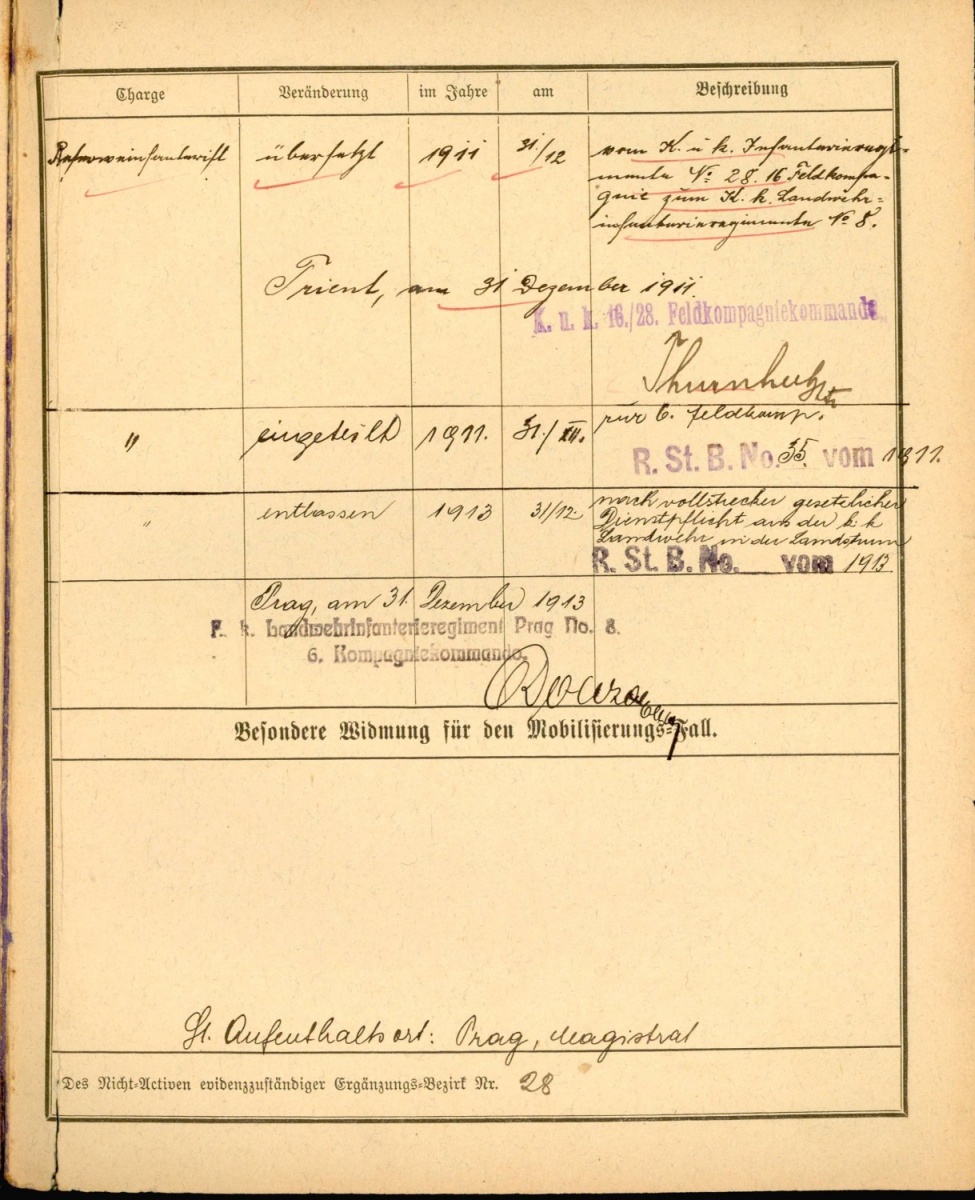 Charge Veränderung im Jahre am Beschreibung
Reserveinfanterist übersetzt 1911 31/12 vom K. u. k. Infanterieregi-
mente No 28. 16 Feldkompa-
gnie zum K. k. Landwehr-
infanterieregimente No 8.
Trient, am 31 Dezember 1911.
K. u. k. 16./28. Feldkompagniekommando.
" eingeteilt 1911. 31./XII. zur 6. Feldkomp.
R. St. B. No. 35. vom 1911.
" entlassen 1913 31/12. nach vollstreckter gesetzlicher
Dienstpflicht aus der k. k.
Landwehr in der Landsturm
R. St. B. No. vom 1913
Prag, am 31. Dezember 1913
K. k. Landwehrinfanterieregiment Prag No. 8.
6. Kompagniekommando.
Besondere Widmung für den Mobilisierungs=Fall.
St. Aufenthaltsort: Prag, Magistrat
Des Nicht=Activen evidenzzuständiger Ergänzungs=Bezirk Nr. 28